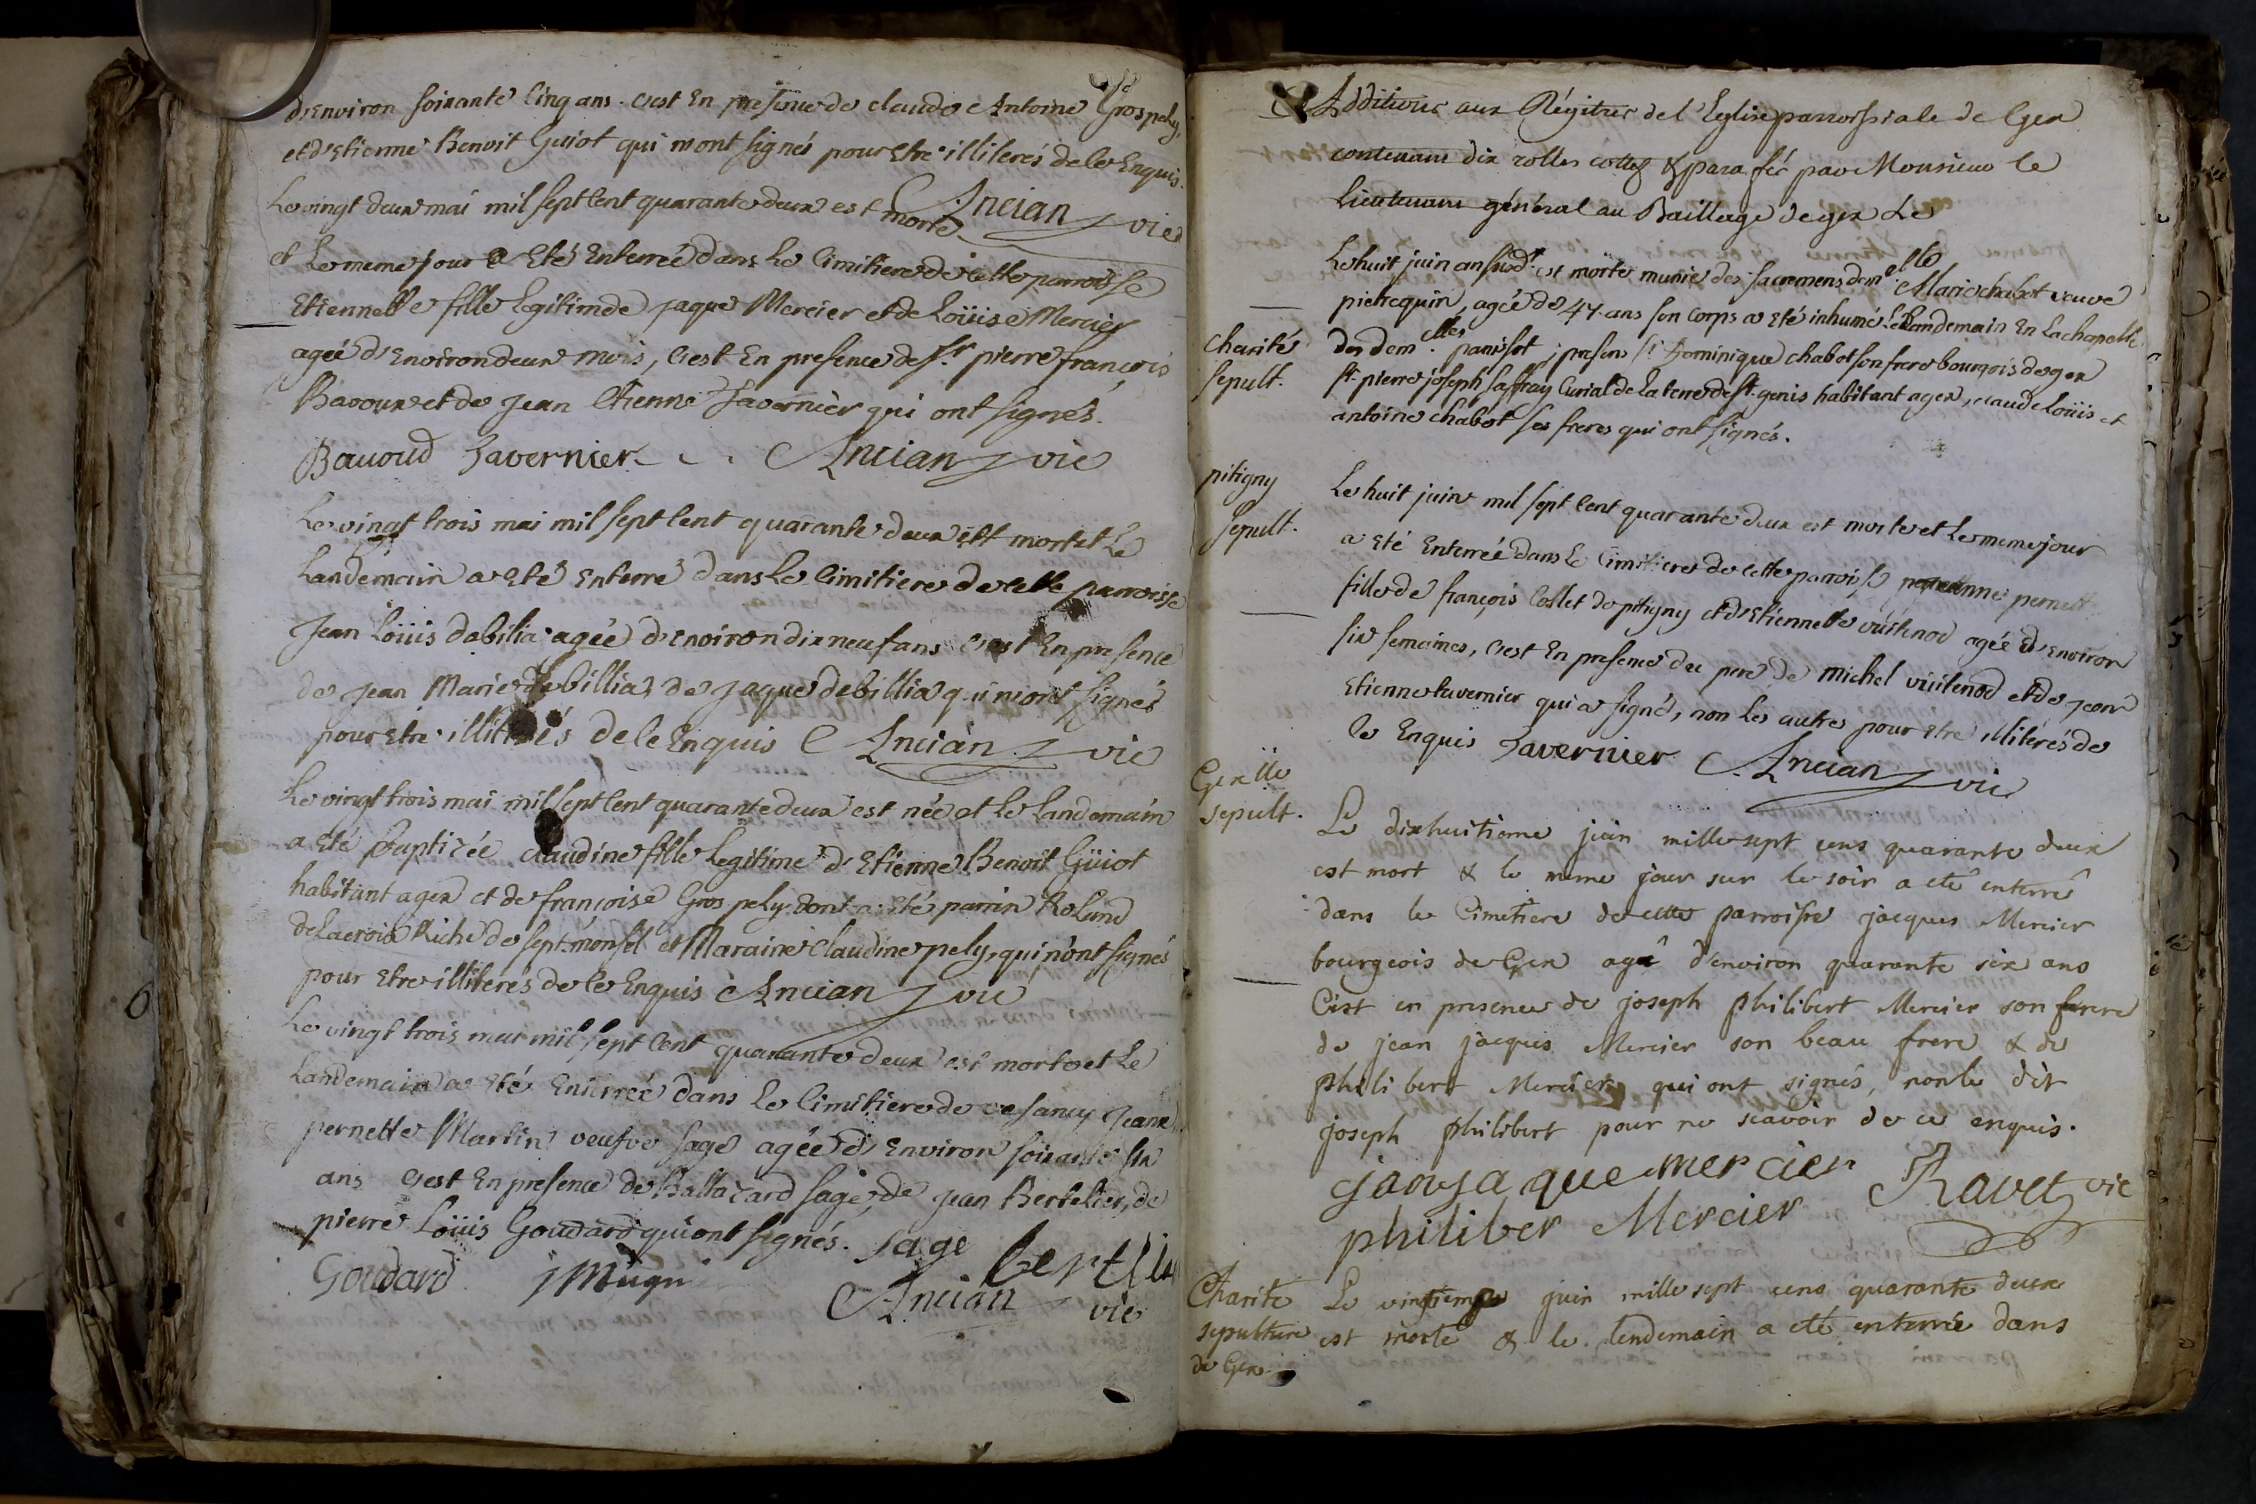 d'Environ soixante Cinq ans. C'est En presence de claude Antoine Grospely,
et d'Etienne Benoit Guiot qui n'ont signés pour Etre illiterés de le Enquis.
Ancian vic
Le vingt deux mai mil sept Cent quarante deux est morte
et le meme jour a Eté Enterrée dans Le Cimitiere de cette parroisse
Etiennette fille Legitime de jaque Mercier et de Loüise Mercier
agée d'Environ deux mois, C'est En presence de Sr. pierre françois
Bavoux et de Jean Etienne Tavernier qui ont signés.
Bavoud Tavernier Ancian vic
Le vingt trois mai mil sept Cent quarante deux est mort et Le
Landemain a Eté Enterré dans Le Cimitiere de cette parroisse
Jean Loüis dabilia agée d'Environ dix neuf ans C'est En presence
de Jean Marie debillia, de Jaque debillia qui n'ont signés
pour Etre illiterés de le Enquis Ancian vic
Le vingt trois mai mil sept Cent quarante deux est née et le Landemain
a Eté Baptizée claudine fille Legitime d'Etienne Benoit Guiot
habitant a gex et de françoise Gros pely dont a Eté parrin Roland
de Lacroix Riche de septmonsel et Maraine Claudine pely, qui n'ont signés
pour Etre illiterés de le Enquis Ancian vic
Le vingt trois mai mil sept Cent quarante deux est morte et Le
Landemain a Eté Enterrée dans Le Cimitiere de vesancy Jeanne
pernette Martin veufve sage agée d'Environ soixante six
ans C'est En presence de Baltazard sage, de Jean Bertelier, de
pierre Loüis Goudard qui ont signés. sage
Goudard Ancian vic
Additions aux Régitres de l'Eglise parroissiale de Gex
contenans dix rolles cottez & parafés par Monsieur le
Lieutenant général au Baillage de gex Le
Le huit juin an susdt. est morte munie des sacremens demelle Marie chabot veuve
pierrequin, agée de 47. ans son corps a Eté inhumé le Landemain En La chapelle
charité
sepult.
des demelles. panissot, presens Sr. Dominique chabot son frere bourgois de gex
Sr. pierre joseph saffray Curial de La terre de St. genis habitant a gex, claude Loüis et
antoine chabot ses freres qui ont signés.
pitigny
sepult.
Le huit juin mil sept Cent quarante deux est morte et Le meme jour
a Eté Enterrée dans Le Cimitiere de cette parroisse pernett
fille de françois Collet de pitigny et d'Etiennette vüitenod agée d'Environ
six semaines, C'est En presence du pere de michel vüitenod et de Jean
Etienne tavernier qui a signé, non les autres pour Etre illiterés de
le Enquis Tavernier Ancian vic
Gex lle
sepult.
Le dixhuitieme juin mille sept cens quarante deux
est mort & le meme jour sur le soir a eté enterré
dans le Cimetiere de cette parroisse jacques Mercier
bourgeois de Gex agé d'environ quarante six ans
C'est en presence de joseph philibert Mercier son frere
de jean jacques Mercier son beau frere & de
philibert Mercier qui ont signés, non le dit
joseph philibert pour ne scavoir de ce enquis.
janja que mercier Ravet vic
philiber Mercier
Charité
sepulture
de Gex.
Le juin mille sept cens quarante deux
est morte & le lendemain a eté enterrée dans